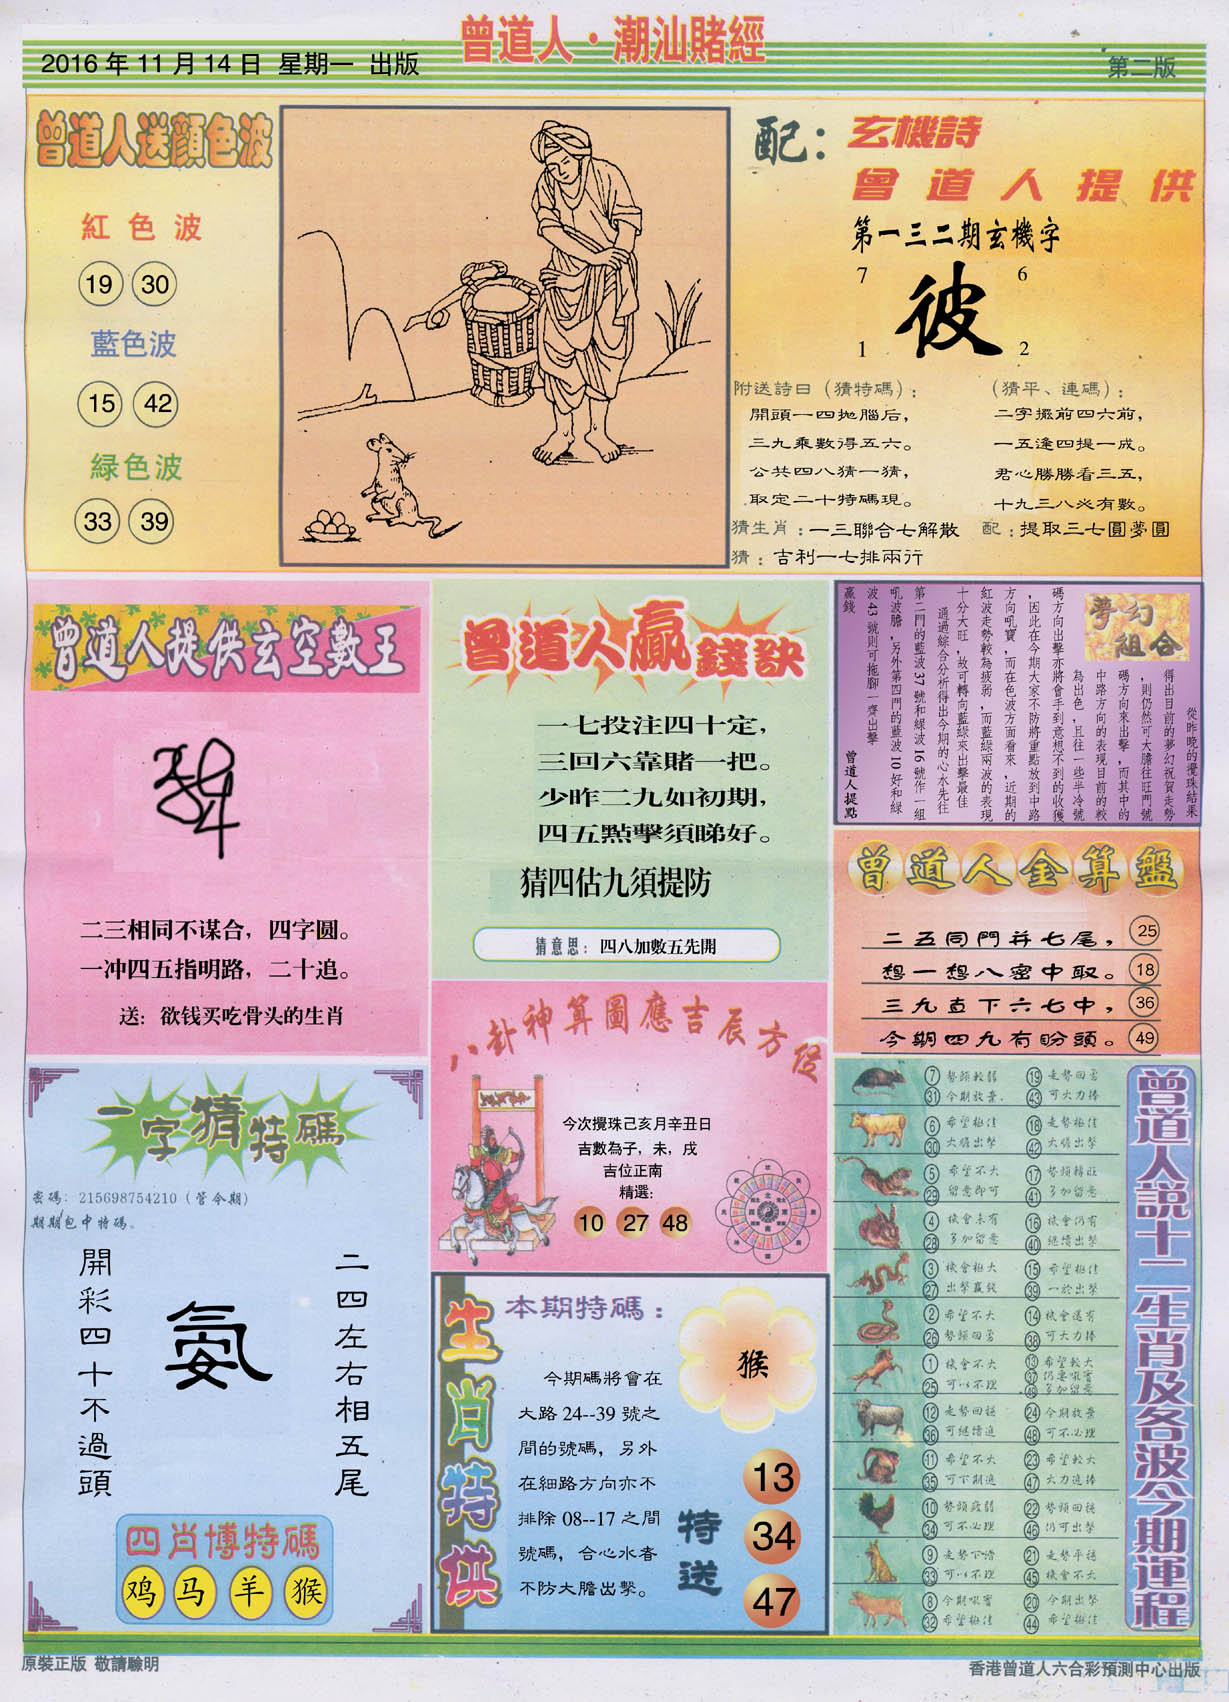 曾道人·潮汕賭經
2016年11月14日 星期一 出版
第二版
曾道人送顏色波
紅色波
19 30
藍色波
15 42
緑色波
33 39
配：玄機詩
曾道人提供
第一三二期玄機字
7 6
彼
1 2
附送詩曰（猜特碼）：
開頭一四拋腦后，
三九乘數得五六。
公共四八猜一猜，
取定二十特碼現。
（猜平、連碼）：
二字擺前四六前，
一五逢四提一成。
君心勝勝看三五，
十九三八必有數。
猜生肖：一三聯合七解散
配：提取三七圓夢圓
猜：吉利一七排兩行
曾道人提供玄空數王
二三相同不谋合，四字圆。
一冲四五指明路，二十追。
送：欲钱买吃骨头的生肖
曾道人贏錢訣
一七投注四十定，
三回六靠賭一把。
少昨二九如初期，
四五點擊須睇好。
猜四估九須提防
猜意思：四八加數五先開
夢幻組合
從昨晚的攪珠結果
得出目前的夢幻祝賀走勢
，則仍然可大膽往旺門號
碼方向來出擊，而其中的
中路方向的表現目前的較
為出色，且往一些半冷號
碼方向出擊亦將會手到意想不到的收獲
，因此在今期大家不防將重點放到中路
方向吼寶，而在色波方面看來，近期的
紅波走勢較為疲弱，而藍綠兩波的表現
十分大旺，故可轉向藍綠來出擊最佳
通過綜合分析得出今期的心水先往
第二門的藍波37號和綠波16號作一組
吼波膽，另外第四門的藍波10好和綠
波43號則可拖腳一齊出擊
贏錢
曾道人提點
曾道人金算盤
二五同門并七尾， 25
想一想八密中取。 18
三九直下六七中， 36
今期四九有盼頭。 49
八卦神算圖應吉辰方位
今次攪珠己亥月辛丑日
吉數為子，未，戌
吉位正南
精選：
10 27 48
一字猜特碼
密碼：215698754210（管今期）
期期包中特碼。
二四左右相五尾
氨
開彩四十不過頭
四肖博特碼
鸡 马 羊 猴
生肖特供
本期特碼：
猴
今期碼將會在
大路24--39號之
間的號碼，另外
在細路方向亦不
排除08--17之間
號碼，合心水者
不防大膽出擊。
特送
13
34
47
曾道人説十二生肖及各波今期運程
7 勢頭較弱 19 走勢回勇
31 今期放棄 43 可大力捧
6 希望極佳 18 走勢極佳
30 大膽出擊 42 大膽出擊
5 希望不大 17 勢頭轉旺
29 留意即可 41 多加留意
4 機會未有 16 機會仍有
28 多加留意 40 繼續出擊
3 機會極大 15 希望極佳
27 出擊贏錢 39 一於出擊
2 希望不大 14 機會還有
26 勢頭回勇 38 可大力捧
1 機會不大 13 希望較大
25 可以不理 37 仍要吸寶
49 多加留意
12 走勢回穩 24 今期放棄
36 可繼續追 48 可不必理
11 希望不大 23 希望較大
35 可下期追 47 大力追捧
10 勢頭疲弱 22 勢頭回穩
34 可不必理 46 仍可出擊
9 走勢下滑 21 走勢平穩
33 可以不理 45 機會不大
8 今期吸寶 20 今期出擊
32 希望極佳 44 希望極佳
原裝正版 敬請驗明
香港曾道人六合彩預測中心出版